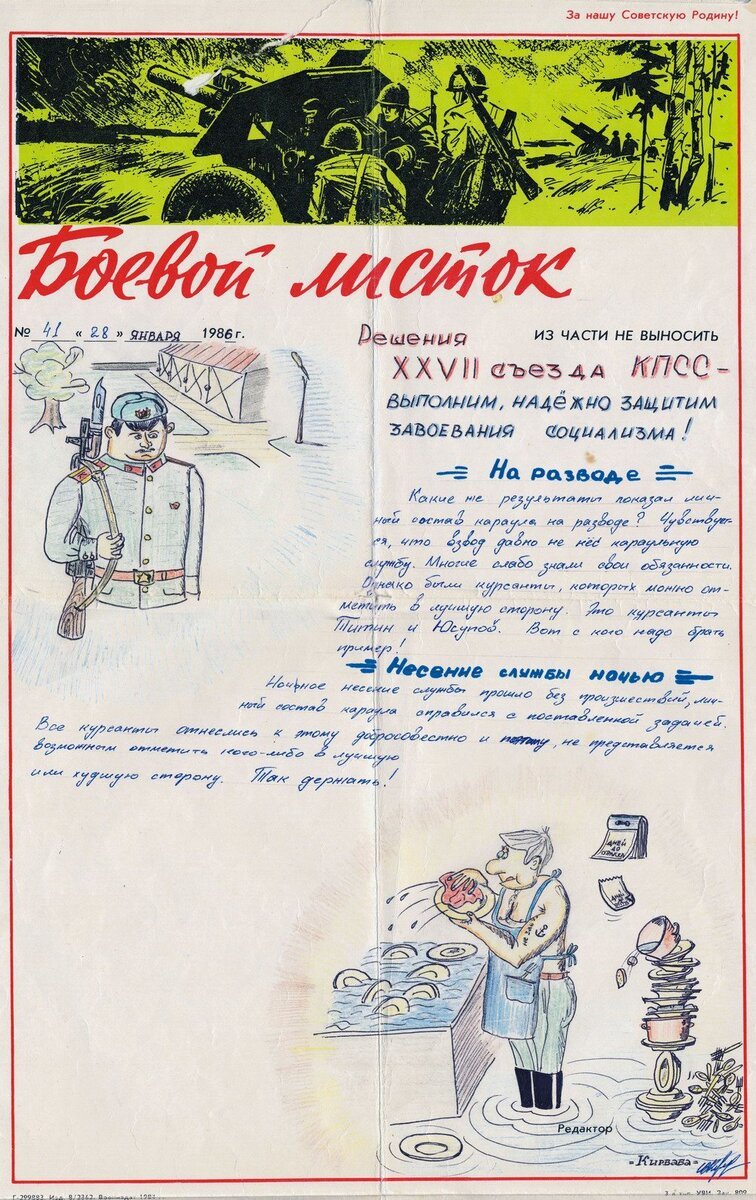 За нашу Советскую Родину!
Боевой листок
№ 41 «28» ЯНВАРЯ 1986 г.
ИЗ ЧАСТИ НЕ ВЫНОСИТЬ
Решения
XXVII съезда КПСС –
ВЫПОЛНИМ, НАДЁЖНО ЗАЩИТИМ
ЗАВОЕВАНИЯ СОЦИАЛИЗМА!
На разводе
Какие же результаты показал лич-
ный состав караула на разводе? Чувствует-
ся, что взвод давно не нёс караульную
службу. Многие слабо знали свои обязанности.
Однако были курсанты, которых можно от-
метить в лучшую сторону. Это курсанты
Титин и Юсупов. Вот с кого надо брать
пример!
Несение службы ночью
Ночное несение службы прошло без происшествий, лич-
ный состав караула справился с поставленной задачей.
Все курсанты отнеслись к этому добросовестно и потому, не представляется
возможным отметить кого-либо в лучшую
или худшую сторону. Так держать!
ДНЕЙ
ДО
Редактор
"Кирваба"